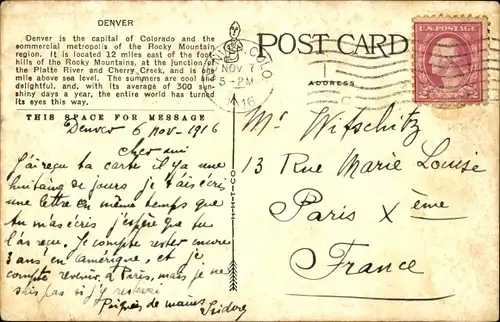 DENVER
Denver is the capital of Colorado and the
commercial metropolis of the Rocky Mountain
region. It is located 12 miles east of the foot-
hills of the Rocky Mountains, at the junction of
the Platte River and Cherry Creek, and is one
mile above sea level. The summers are cool and
delightful, and, with its average of 300 sun-
shiny days a year, the entire world has turned
its eyes this way.
THIS SPACE FOR MESSAGE
Denver 6 nov - 1916
cher ami
J'ai reçu ta carte il y a une
huitaine de jours je t'ais écri
une lettre en même temps que
tu m'as écris j'espère que tu
l'as reçue. Je compte rester encore
3 ans en amérique, et je
compte revenir à Paris, mais je ne
sais pas si j'y resterai
Poignées de mains
Isidore
COLO.
NOV 7
5-PM
1916
POST CARD
ADDRESS
U.S. POSTAGE
Mr Witschitz
13 Rue Marie Louise
Paris X ème
France
C.T.